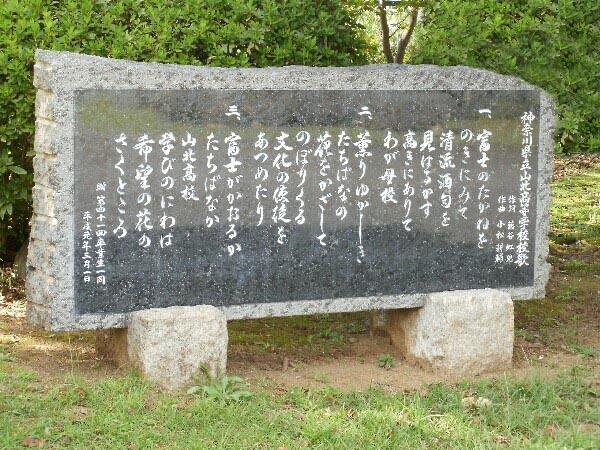 神奈川県立山北高等学校校歌
作詞 蕗谷虹児
作曲 小松耕輔
一、富士のたかねを
のきにみて
清流酒匂を
見はるかす
高きにありて
わが母校
二、薫りゆかしき
たちばなの
花をかざして
のぼりくる
文化の使徒を
あつめたり
三、富士がかおるか
たちばなか
山北高校
学びのにわは
希望の花の
さくところ
贈 第四十一回卒業生一同
平成元年三月一日